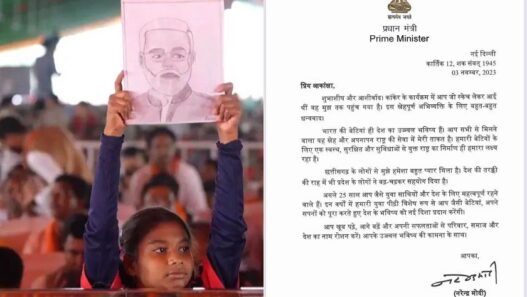 प्रधान मंत्री
Prime Minister
नई दिल्ली
कार्तिक 12, शक संवत् 1945
03 नवम्बर, 2023
प्रिय आकांक्षा,
शुभाशीष और आशीर्वाद। कांकेर के कार्यक्रम में आप जो स्केच लेकर आई
थीं वह मुझ तक पहुंच गया है। इस स्नेहपूर्ण अभिव्यक्ति के लिए बहुत-बहुत
धन्यवाद।
भारत की बेटियां ही देश का उज्ज्वल भविष्य हैं। आप सभी से मिलने
वाला यह स्नेह और अपनापन राष्ट्र की सेवा में मेरी ताकत है। बेटियों के
लिए एक स्वस्थ, सुरक्षित और सुविधाओं से युक्त राष्ट्र का निर्माण ही हमारा लक्ष्य
रहा है।
छत्तीसगढ़ के लोगों से मुझे हमेशा बहुत प्यार मिला है। देश की तरक्की
की राह में भी प्रदेश के लोगों ने बढ़-चढ़कर सहयोग दिया है।
अगले 25 साल आप जैसे युवा साथियों और देश के लिए महत्वपूर्ण रहने
वाले हैं। इन वर्षों में हमारी युवा पीढ़ी विशेष रूप से आप जैसी बेटियां, अपने
सपनों को पूरा करते हुए देश के भविष्य को नई दिशा प्रदान करेंगी।
आप खूब पढ़ें, आगे बढ़ें और अपनी सफलताओं से परिवार, समाज और
देश का नाम रोशन करें। आपके उज्ज्वल भविष्य की कामना के साथ।
आपका,
(नरेन्द्र मोदी)